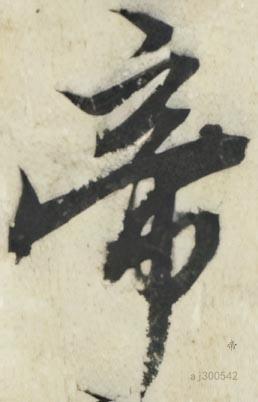 帝
帝
aj300542